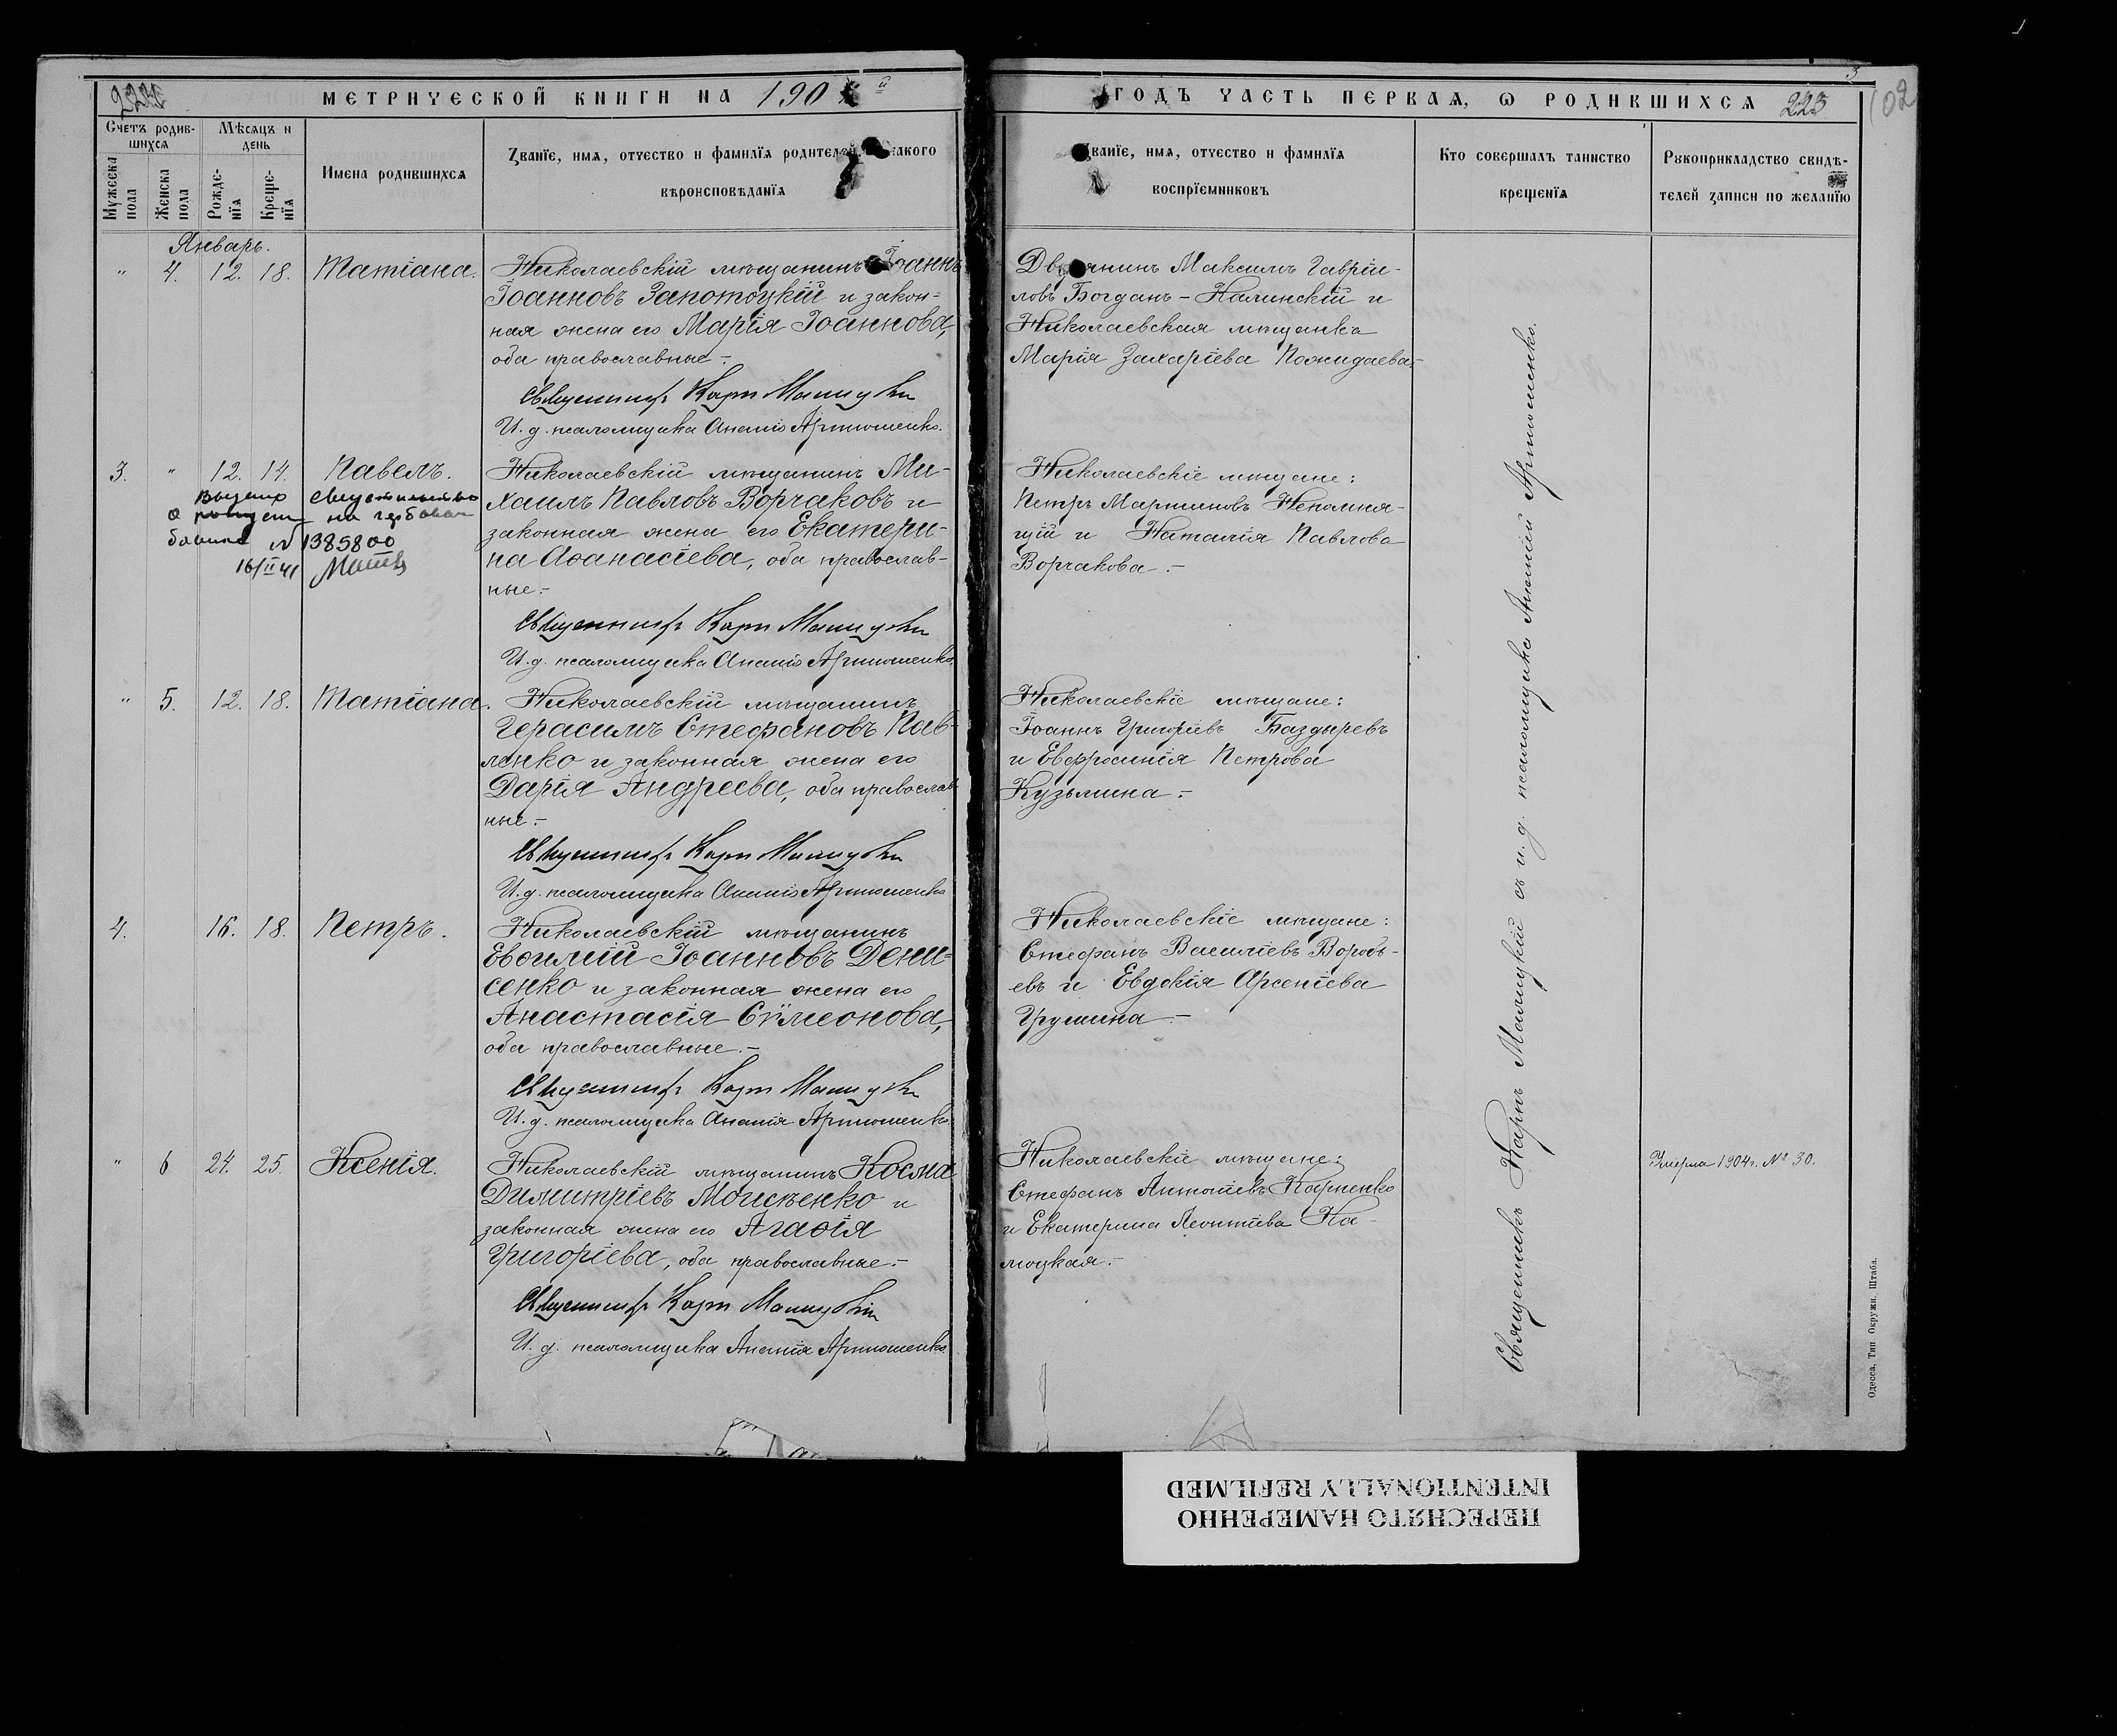 МЕТРИЧЕСКОЙ КНИГИ НА 190 й
Счетъ родив-
шихся
Мѣсяцъ и
день
Мужеска
пола
Женска
пола
Рожде-
нія
Креще-
нія
Имена родившихся
Званіе, имя, отчество и фамилія родителей
вѣроисповѣданія
Январь.
" 4. 12. 18. Татіана.
Николаевскій мѣщанинъ Іоаннъ
Іоанновъ Запотоцкій и закон-
ная жена его Марія Іоаннова,
оба православные.-
Священникъ Карпъ
И. д. псаломщика Ананія Артюшенко.
3. " 12. 14. Павелъ.
Выдано свидетельство
о рождении на гербовой
№ 1385800
16/II 41
Николаевскій мѣщанинъ Ми-
хаилъ Павловъ Ворчаковъ и
законная жена его Екатери-
на Аѳанасіева, оба православ-
ные.-
Священникъ Карпъ
И. д. псаломщика Ананія Артюшенко.
" 5. 12. 18. Татіана.
Николаевскій мѣщанинъ
Герасимъ Стефановъ Пав-
ленко и законная жена его
Дарія Андреева, оба православ-
ные.-
Священникъ Карпъ
И. д. псаломщика Ананія Артюшенко
4. 16. 18. Петръ.
Николаевскій мѣщанинъ
Евѳимій Іоанновъ Дени-
сенко и законная жена его
Анастасія Сѵмеонова,
оба православные.-
Священникъ Карпъ
И. д. псаломщика Ананія Артюшенко
" 6 24. 25. Ксенія.
Николаевскій мѣщанинъ Косма
Димитріевъ Моисѣенко и
законная жена его Агаѳія
Григоріева, оба православные.-
Священникъ Карпъ
И. д. псаломщика Ананія Артюшенко
ГОДЪ ЧАСТЬ ПЕРВАЯ, Ѡ РОДИВШИХСЯ 223
Званіе, имя, отчество и фамилія
воспріемниковъ
Кто совершалъ таинство
крещенія
Рукоприкладство свидѣ-
телей записи по желанію
Дворянинъ Максимъ Гавріи-
ловъ Богданъ-Калинскій и
Николаевская мѣщанка
Марія Захаріева Пожидаева.-
Николаевскіе мѣщане:
Петръ Мартиновъ Непомня-
щій и Наталія Павлова
Ворчакова.-
Николаевскіе мѣщане:
Іоаннъ Григоріевъ Баздыревъ
и Евфросинія Петрова
Кузьмина.-
Николаевскіе мѣщане:
Стефанъ Василіевъ Воробь-
евъ и Евдокія Арсеніева
Грушина.-
Николаевскіе мѣщане:
Стефанъ Антоніевъ Карпенко
и Екатерина Леонтіева Ка-
моцкая.-
Священникъ Карпъ Малицкій съ и. д. псаломщика Ананіей Артюшенко.
Умерла 1904 г. № 30.
Одесса, Тип. Окружн. Штаба.
ПЕРЕСНЯТО НАМЕРЕННО
INTENTIONALLY REFILMED